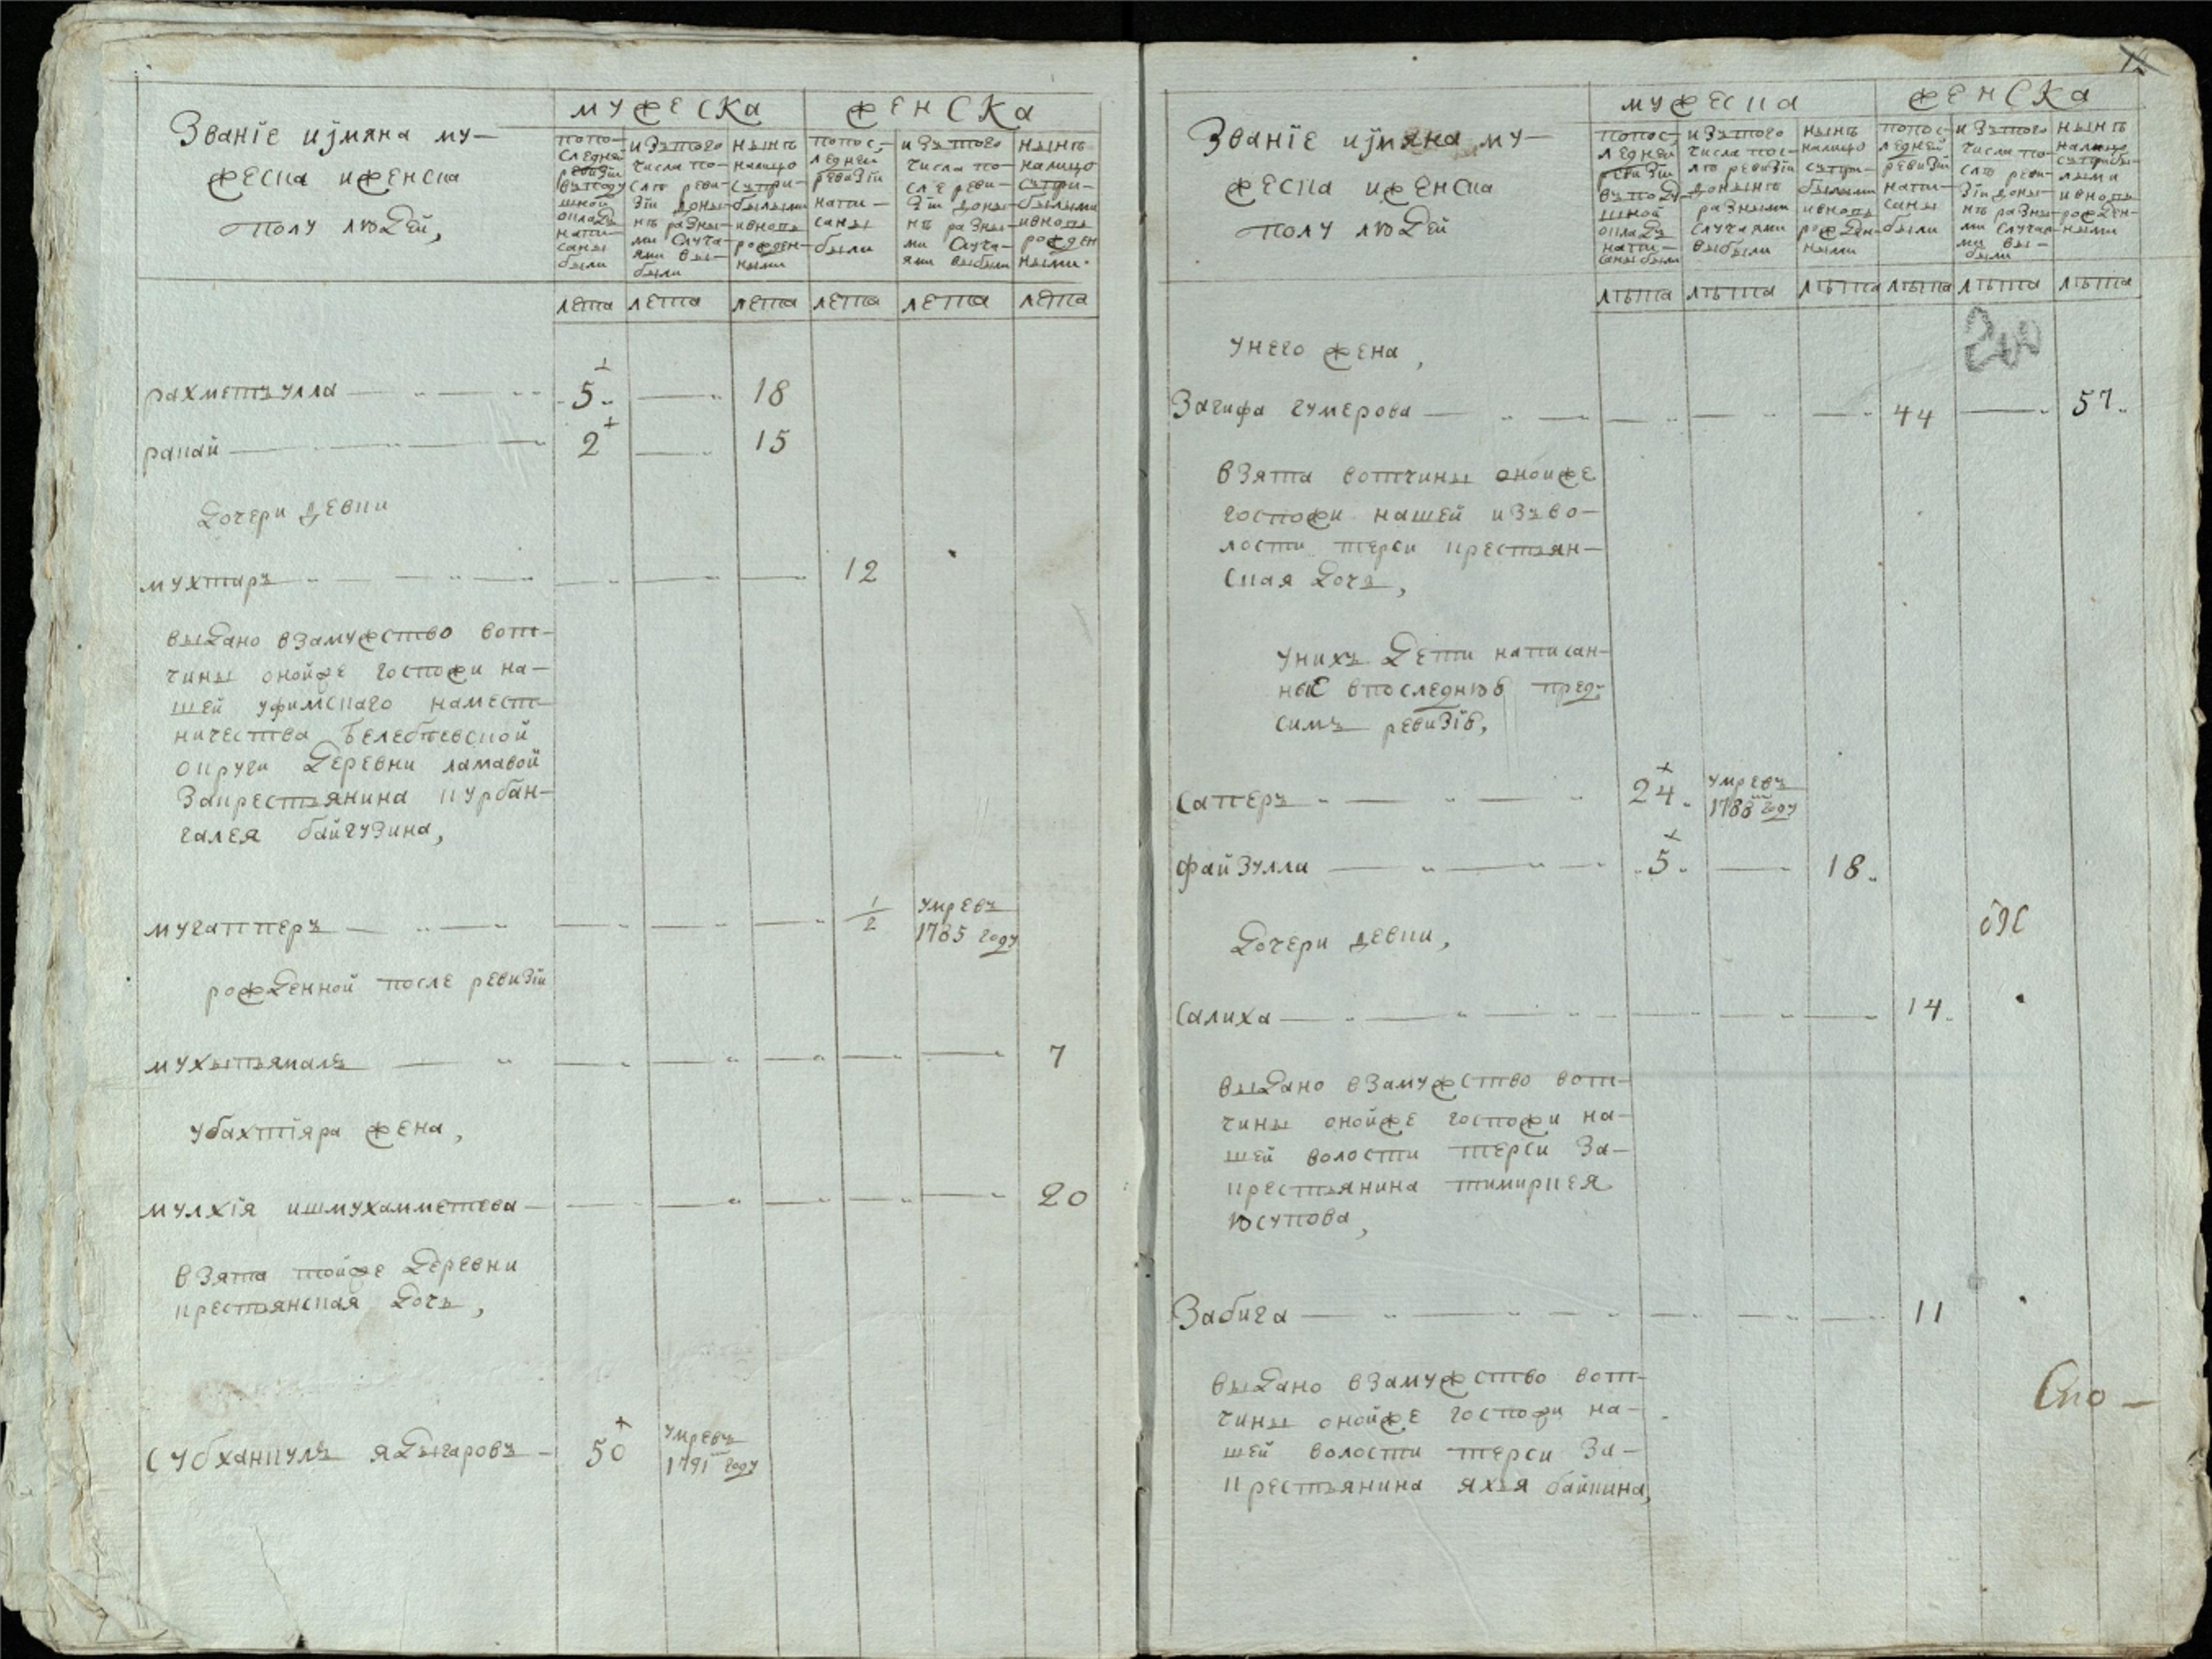 Званїе иjмяна му-
жеска иженска
полу людей,
мужеска
женска
попо-
следней
ревизїи
вуподу
шной
окладъ
напи-
саны
были
изътого
числа по-
слѣ реви-
зїи доны-
нѣ разны-
ми случа-
ями вы-
были
нынѣ
налицо
съпри-
былыми
ивновь
рожден-
ными
попос-
ледней
ревизїи
напи-
саны
были
изътого
числа по-
слѣ реви-
зїи доны-
нѣ разны-
ми случа-
ями выбыли
нынѣ
налицо
съпри-
былыми
ивновь
рожден
ными
лета лета лета лета лета лета
рахметъулла 5 18
рапай 2 15
дочери девки
мухтаръ 12
выдано взамужство вот-
чины онойже госпожи на-
шей уфимскаго намест-
ничества белебѣевской
округи деревни ламавой
закрестьянина курбан-
галея байгузина,
мугаттеръ 1/2 умревъ
1785 году
рожденной после ревизїи
мухътьямалъ 7
убахтїяра жена,
мулхїя ишмухамметева 20
взята тойже деревни
крестьянская дочь,
Субханкулъ ядыгаровъ 50 умревъ
1791 году
Званїе иjмяна му-
жеска иженска
полу людей
мужеска
женска
попос-
ледней
ревизїи
въподу
шной
окладъ
напи-
саны были
изътого
числа пос-
лѣ ревизїи
донынѣ
разными
случаями
выбыли
нынѣ
налицо
съпри-
былыми
ивновь
рожден-
ными
попос-
ледней
ревизїи
напи-
саны
были
изътого
числа по-
слѣ реви-
зїи доны-
нѣ разны-
ми случая-
ми вы-
были
нынѣ
налицо
съприбы-
лыми
ивновь
рожден-
ными
лѣта лѣта лѣта лѣта лѣта лѣта
унего жена,
Загифа гумерова 44 57
взята вотчины онойже
госпожи нашей изъво-
лости терси крестьян-
ская дочь,
унихъ дети написан-
ные впоследнюю пред-
симъ ревизїю,
Саперъ 24 умревъ
1788 году
файзулла 5 18
дочери девки,
Салиха 14
выдано взамужство вот-
чины онойже госпожи на-
шей волости терси за-
крестьянина тимиркея
юсупова,
Забига 11
выдано взамужство вот-
чины онойже госпожи на-
шей волости терси за-
крестьянина яхъя байкина,
Ско-